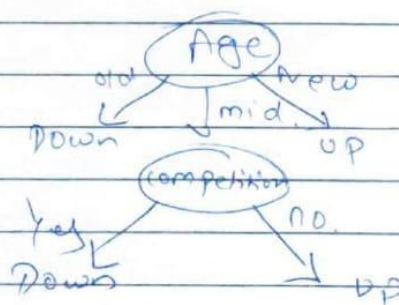 Age
old New
mid.
Down UP
Competition
Yes no.
Down UP